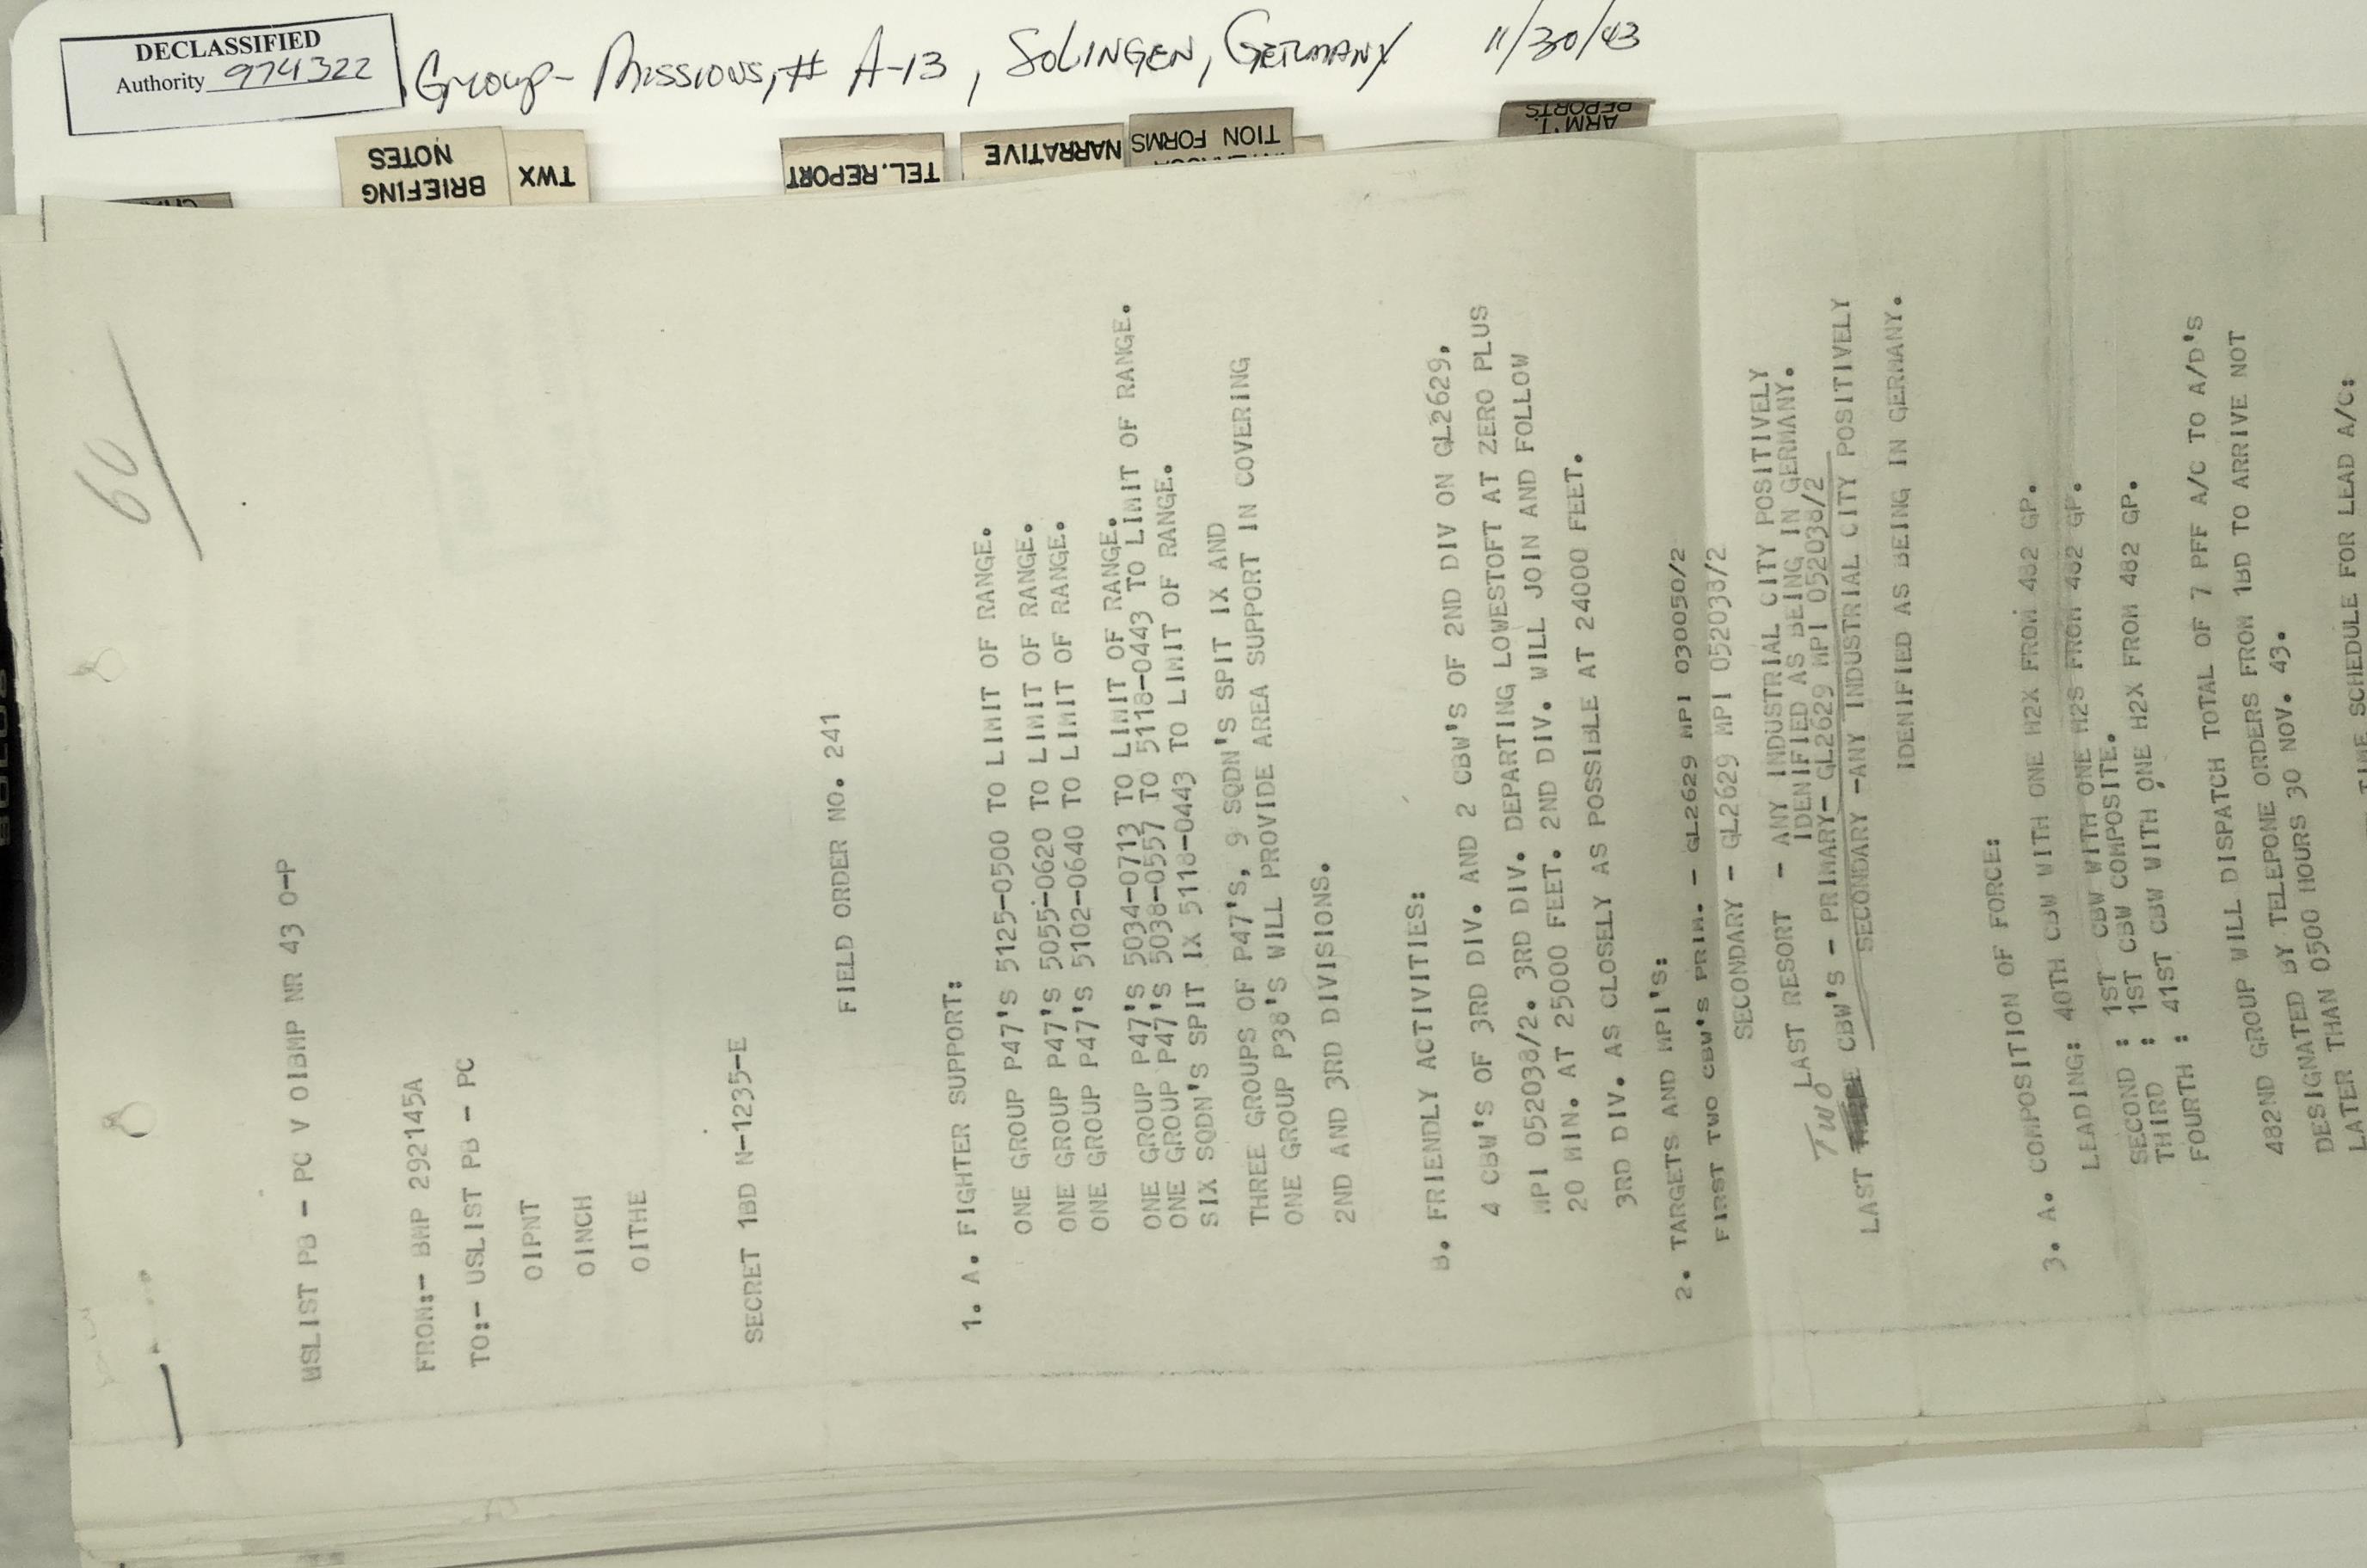 DECLASSIFIED
Authority 974322
Group- Missions, # A-13, SOLINGEN, GERMANY 11/30/43
BRIEFING
NOTES
TWX
TEL. REPORT
NARRATIVE
TION FORMS
ARM'T
REPORTS
60
WSLIST PB - PC V OIBMP NR 43 O-P
FROM:- BMP 292145A
TO:- USLIST PB - PC
OIPNT
OINCH
OITHE
SECRET 1BD N-1235-E
FIELD ORDER NO. 241
1. A. FIGHTER SUPPORT:
ONE GROUP P47'S 5125-0500 TO LIMIT OF RANGE.
ONE GROUP P47'S 5055-0620 TO LIMIT OF RANGE.
ONE GROUP P47'S 5102-0640 TO LIMIT OF RANGE.
ONE GROUP P47'S 5034-0713 TO LIMIT OF RANGE.
ONE GROUP P47'S 5038-0557 TO 5118-0443 TO LIMIT OF RANGE.
SIX SQDN'S SPIT IX 5118-0443 TO LIMIT OF RANGE.
THREE GROUPS OF P47'S, 9 SQDN'S SPIT IX AND
ONE GROUP P38'S WILL PROVIDE AREA SUPPORT IN COVERING
2ND AND 3RD DIVISIONS.
B. FRIENDLY ACTIVITIES:
4 CBW'S OF 3RD DIV. AND 2 CBW'S OF 2ND DIV ON GL2629,
MPI 052038/2. 3RD DIV. DEPARTING LOWESTOFT AT ZERO PLUS
20 MIN. AT 25000 FEET. 2ND DIV. WILL JOIN AND FOLLOW
3RD DIV. AS CLOSELY AS POSSIBLE AT 24000 FEET.
2. TARGETS AND MPI'S:
FIRST TWO CBW'S PRIM. - GL2629 MPI 030050/2
SECONDARY - GL2629 MPI 052038/2
LAST RESORT - ANY INDUSTRIAL CITY POSITIVELY
IDENIFIED AS BEING IN GERMANY.
LAST TWO CBW'S - PRIMARY- GL2629 MPI 052038/2
SECONDARY -ANY INDUSTRIAL CITY POSITIVELY
IDENIFIED AS BEING IN GERMANY.
3. A. COMPOSITION OF FORCE:
LEADING: 40TH CBW WITH ONE H2X FROM 482 GP.
SECOND : 1ST CBW WITH ONE H2S FROM 482 GP.
THIRD : 1ST CBW COMPOSITE.
FOURTH : 41ST CBW WITH ONE H2X FROM 482 GP.
482ND GROUP WILL DISPATCH TOTAL OF 7 PFF A/C TO A/D'S
DESIGNATED BY TELEPONE ORDERS FROM 1BD TO ARRIVE NOT
LATER THAN 0500 HOURS 30 NOV. 43.
TIME SCHEDULE FOR LEAD A/C: